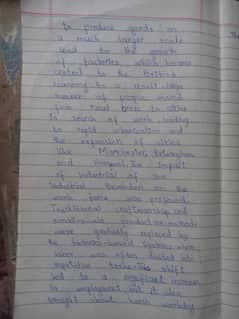 to produce goods on
a much larger scale
lead to the growth
of factories, which became
central to the British
economy As a result large
number of people moved
from rural areas to cities
In search of work leading
to rapid urbanization and
the expansion of cities
like Manchester, Birmingham
and Liverpool, the Impact
of Industrial of the
Industrial Revolution on the
work force was profound.
Traditional craftsmanship and
small-scale production methods
were gradually replaced by
the factories-based systems where
labor was often divided into
repetitive tasks this shift
led to a significant increase
In employment but it also
brought about harsh working